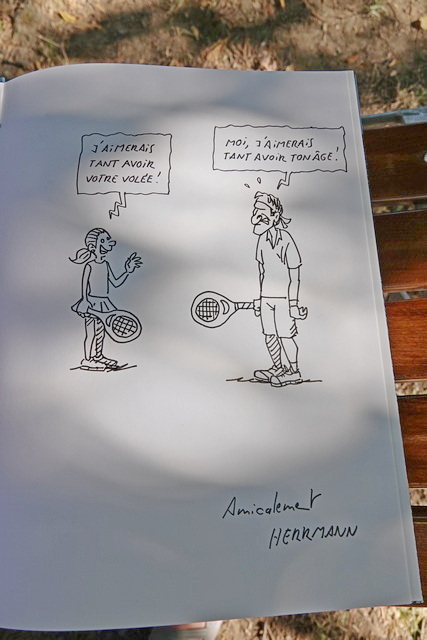 J'AIMERAIS
TANT AVOIR
VOTRE VOLÉE !
MOI, J'AIMERAIS
TANT AVOIR TON ÂGE !
Amicalement
HERRMANN